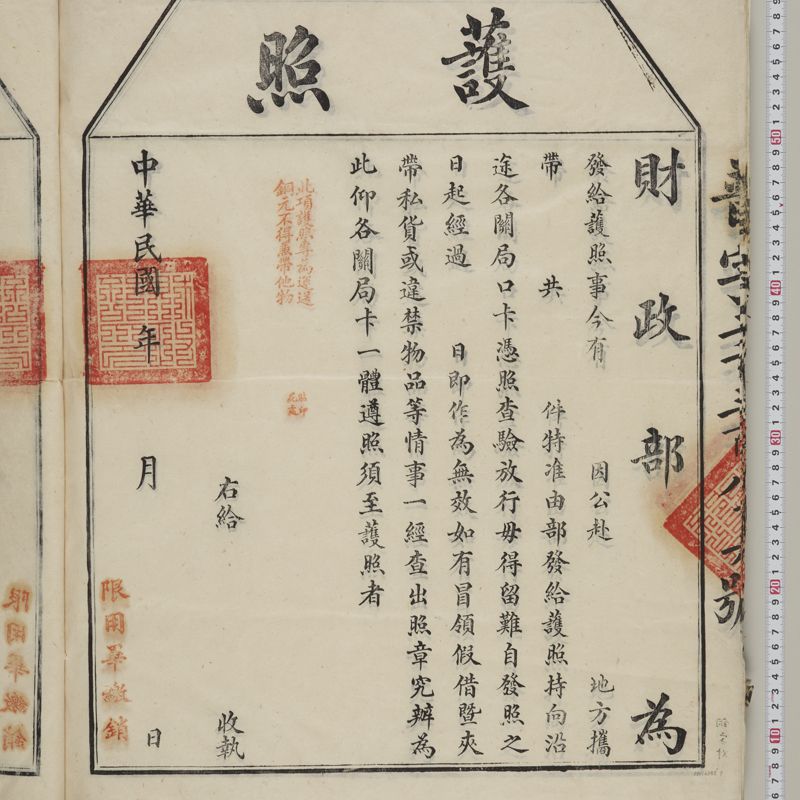 護照
財政部為
發給護照事今有 因公赴 地方攜
帶 共 件特准由部發給護照持向沿
途各關局口卡憑照查驗放行毋得留難自發照之
日起經過 日即作為無效如有冒領假借暨夾
帶私貨或違禁物品等情事一經查出照章究辦為
此仰各關局卡一體遵照須至護照者
此項護照專為運送
銅元不得夤帶他物
貼印
花處
右給 收執
中華民國 年 月 日
限用畢繳銷
限用畢繳銷